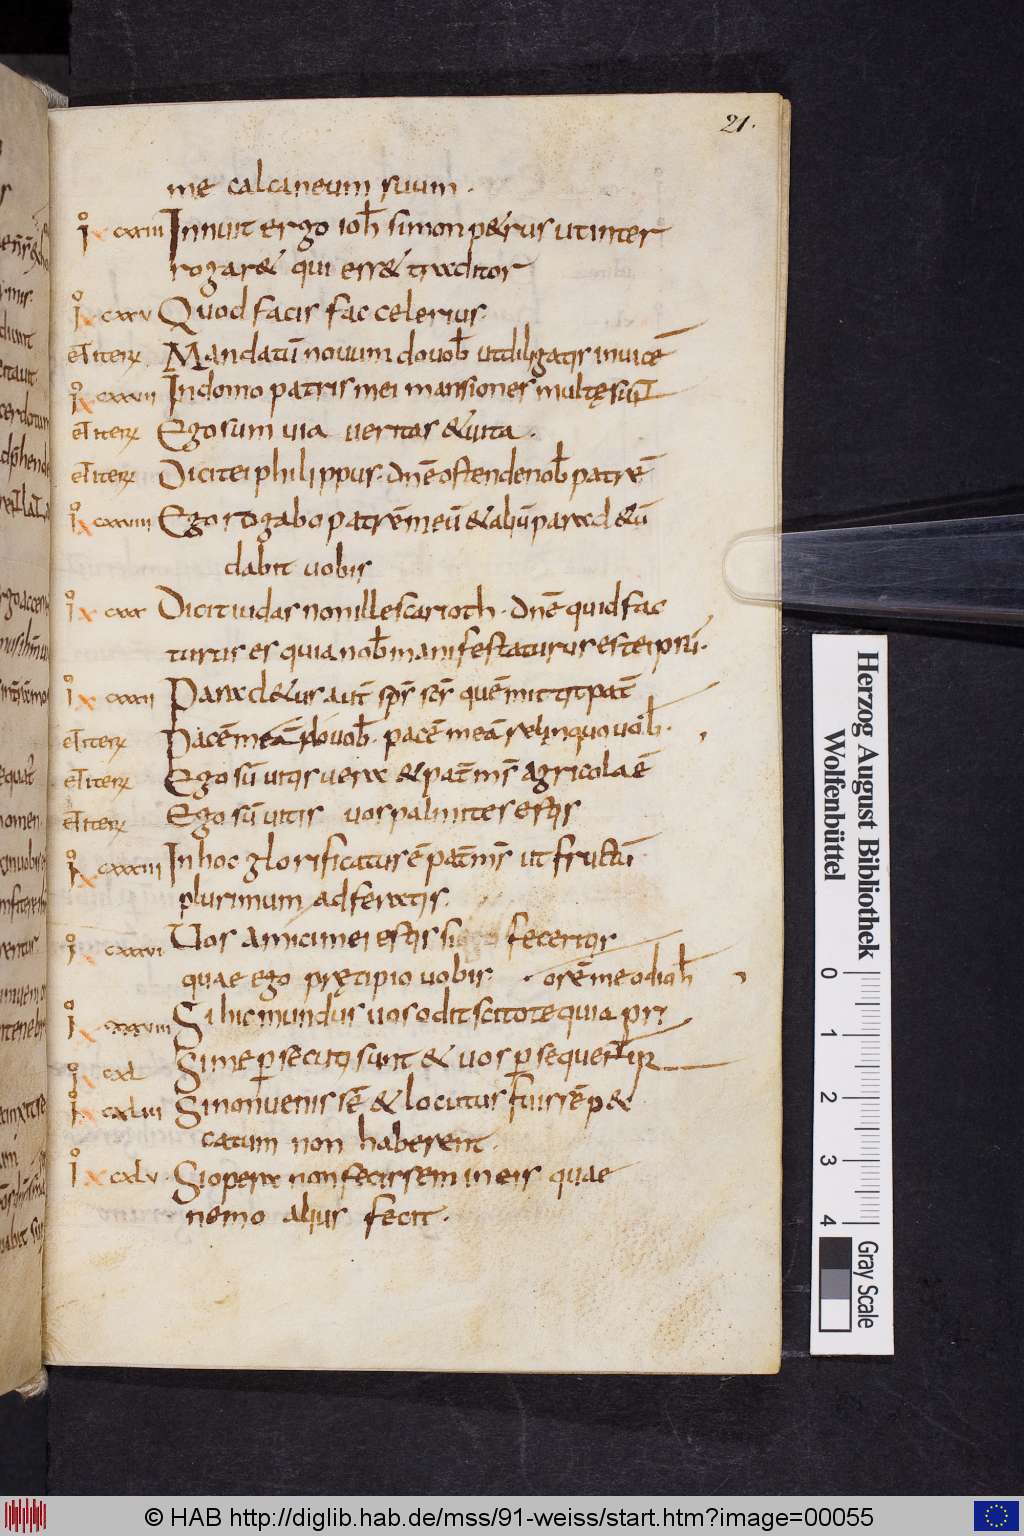 21.
me calcaneum suum.
Io cxxiii Innuit ergo ioh̄ simon p&rus ut inter
rogar& qui ess& traditor
Io cxxv Quod facis fac celerius.
et iteꝝ Mandatū nouum do uob̄ ut diligatis inuicē
Io cxxvii In domo patris mei mansiones multę sunt
et iteꝝ Ego sum uia ueritas & uita.
et iteꝝ Dicit ei philippus. dn̄e ostende nob̄ patrē
Io cxxviii Ego rogabo patrē meū & aliū paracl&ū
dabit uobis
Io cxxx Dicit iudas non ille scarioth. dn̄e quid fac
turus es quia nob̄ manifestaturus es te ipsū.
Io cxxxii Paracl&us aūt sp̄s sc̄s quē mittit pat̄
et iteꝝ Pacē meā do uob̄. pacē meā relinquo uob̄.
et iteꝝ Ego sū uitis uera & pat̄ ms̄ agricola ē
et iteꝝ Ego sū uitis uos palmites estis
Io cxxxiii In hoc glorificatus ē pat̄ ms̄ ut fructū
plurimum adferatis.
Io cxxxvi Uos amici mei estis si feceritis
quae ego pręcipio uobis. orē me odioh̄
Io cxxxviii Si hic mundus uos odit scitote quia pri
Io cxl Si me ꝑsecuti sunt & uos ꝑsequentur
Io cxliii Si non uenissē & locutus fuissē pec
catum non haberent.
Io cxlv Si opera non fecissem in eis quae
nemo alius fecit.
Herzog August Bibliothek
Wolfenbüttel
0 1 2 3 4
Gray Scale
© HAB http://diglib.hab.de/mss/91-weiss/start.htm?image=00055